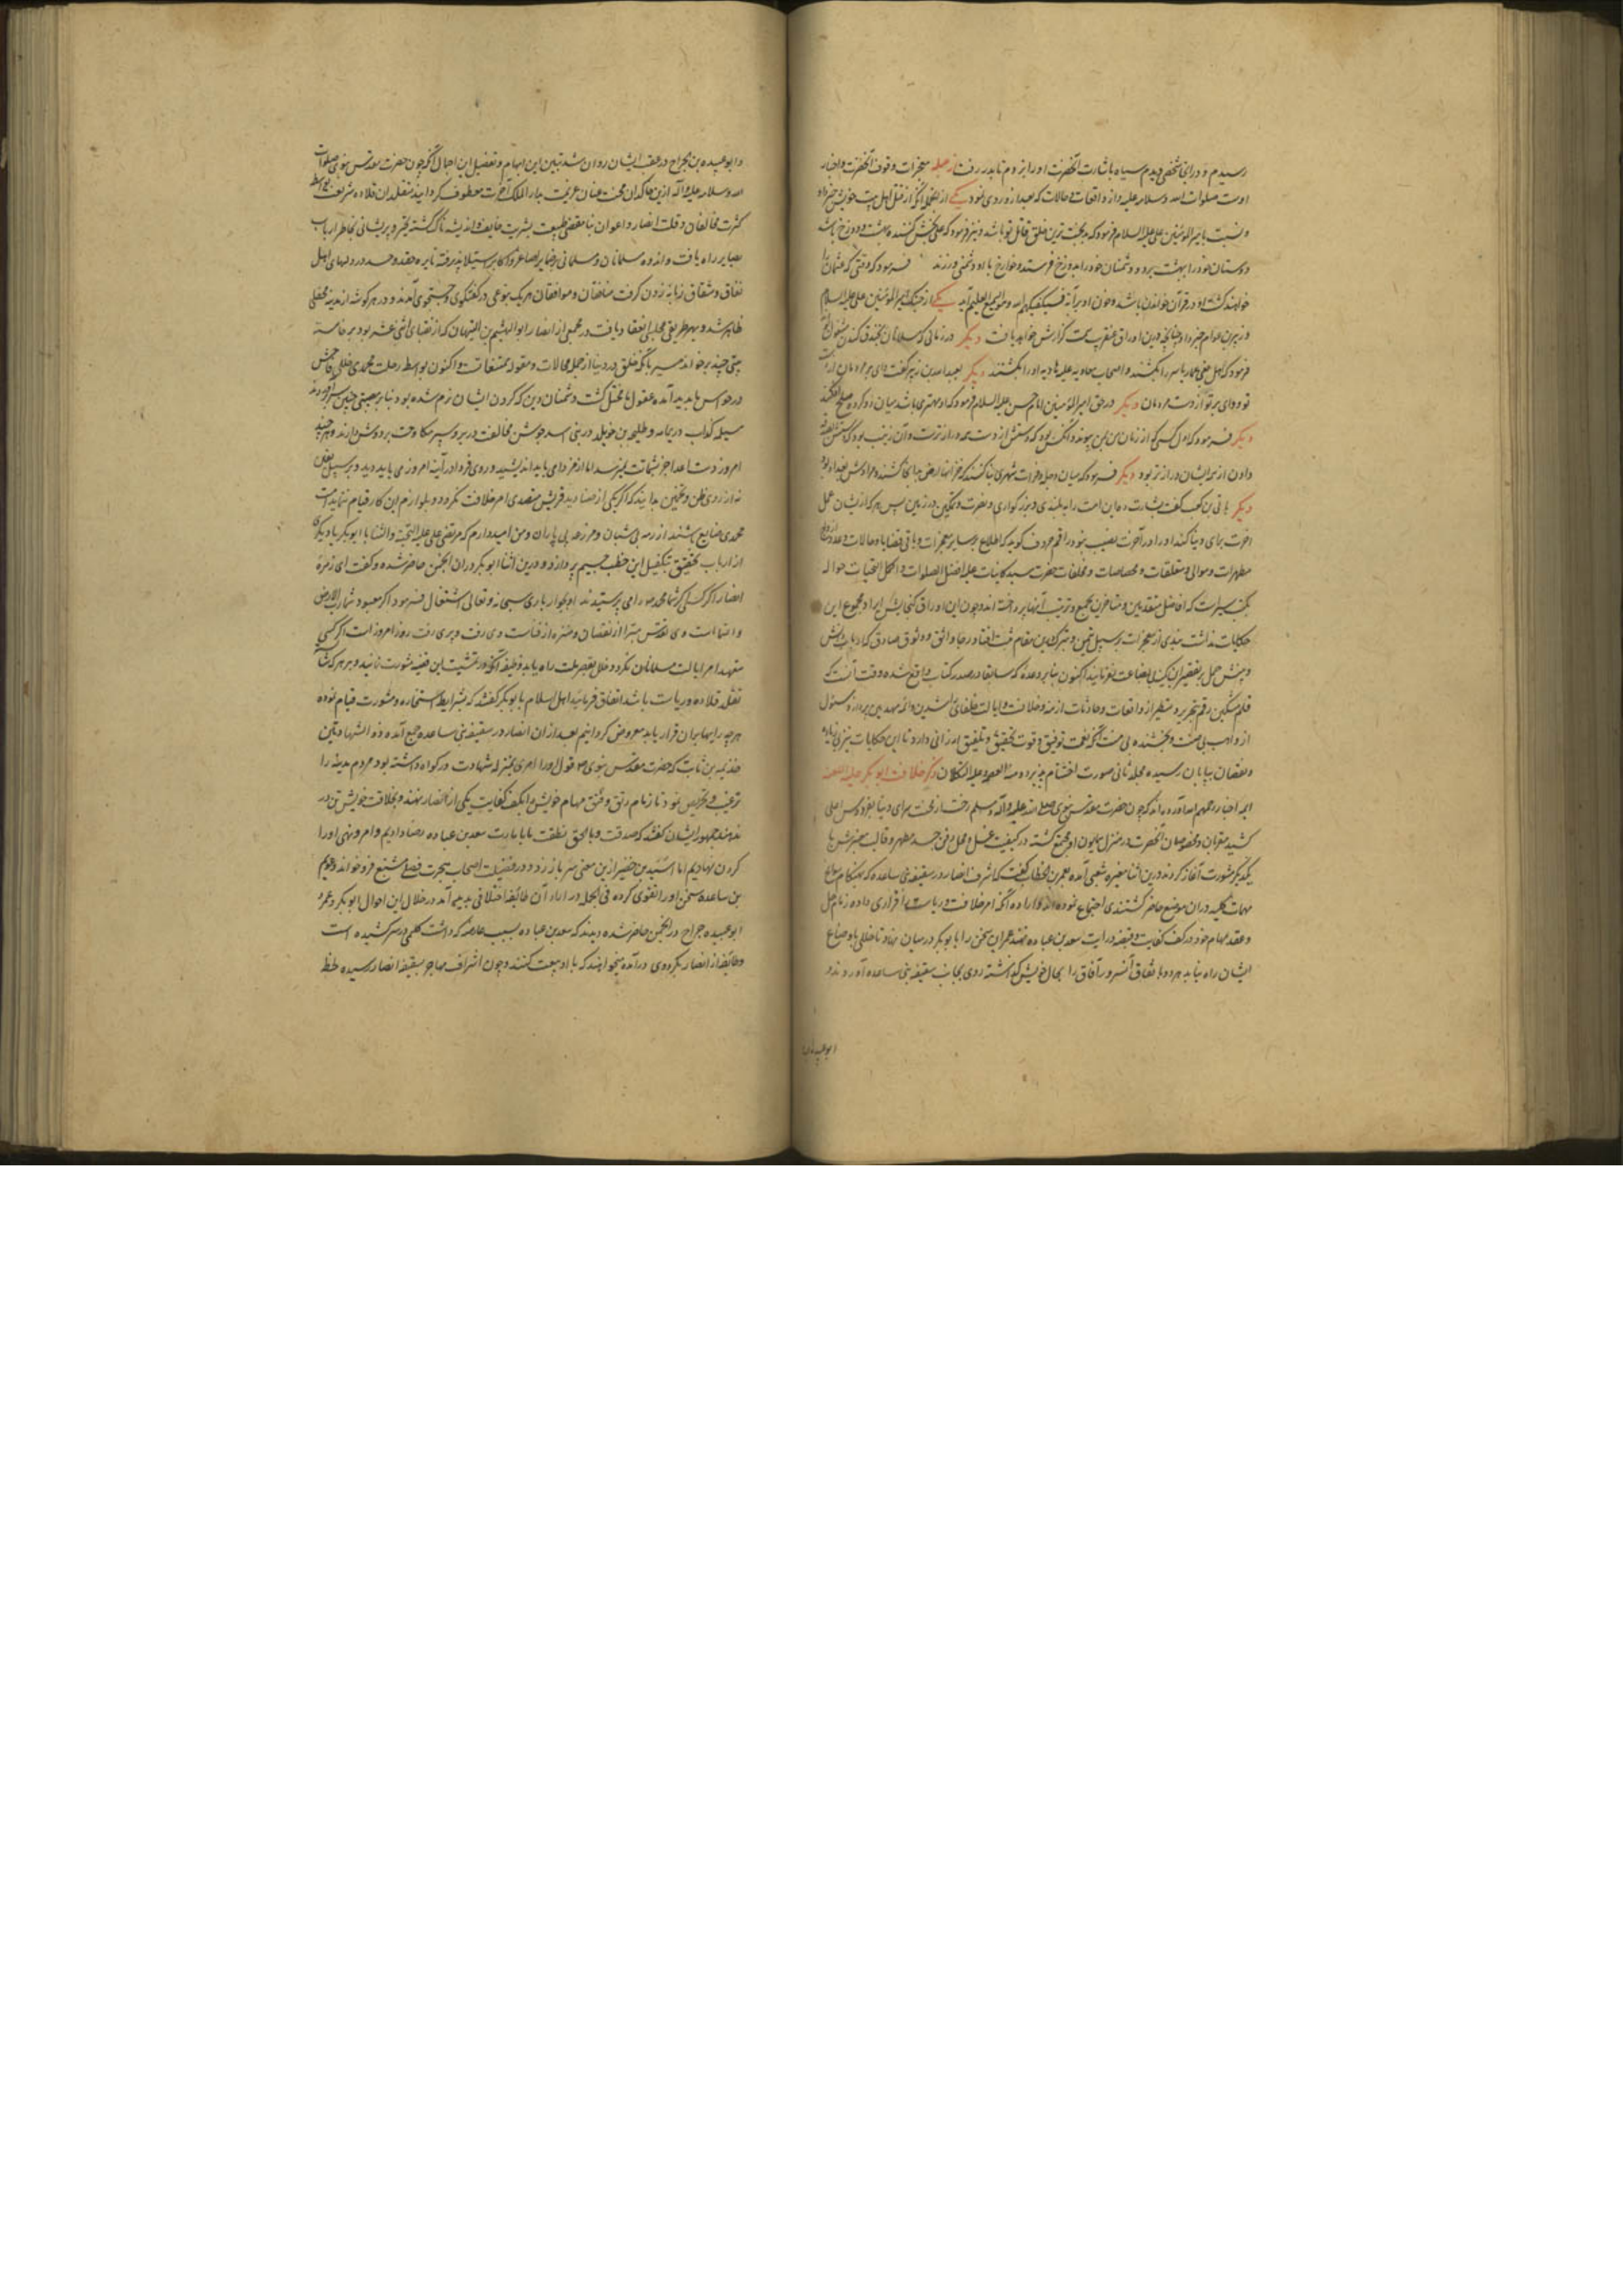 رسیدم و در ان شخصی دیدم سیاه باشارت آنحضرت او را بزدم تا بدر رفت از جمله معجزات وقوف آنحضرت و اخبار
اوست صلوات الله وسلامه علیه از واقعات و حالات که بعد از و روی نمود یکی از انجمله آنکه از قتل اهل بیت خویش خبر داد
و نسبت بامیر المؤمنین علی علیه السلام فرمود که بدبخت ترین خلق قاتل تو باشد و نیز فرمود که علی بخش کننده بهشت و دوزخ باشد
دوستان خود را ببهشت برد و دشمنان خود را بدوزخ فرستد و خوارج با او دشمنی ورزند فرمود که وقتی که عثمان را
خواهند کشت او در قرآن خواندن باشد و خون او بر آیه فسیکفیکهم الله وهو السمیع العلیم آید یکی از جنگ امیر المؤمنین علی علیه السلام
و زبیر بن عوام خبر داد چنانچه درین اوراق عنقریب سمت گزارش خواهد یافت دیگر در زمانی که مسلمانان بخندق کندن مشغول
فرمود که اهل بغی عمار یاسر را بکشند و اصحاب معاویه علیه الهاویه او را بکشتند دیگر بعبد الله بن زبیر گفت وای بر مردمان از
تو و وای بر تو از دست مردمان دیگر در حق امیر المؤمنین امام حسن علیه السلام فرمود که او مهتری باشد میان دو کروه صلح افکند
دیگر فرمود که اول کسی که از زنان من بمن پیوندد آنکس بود که دستش از دست همه درازترست و آن زینب بود که دستش بصدقه
دادن از همه ایشان درازتر بود دیگر فرمود که میان دجله و فرات شهری بنا کنند که خزانهای ارض بدانجا کشند و مرادش بغداد بود
دیگر بابی بن کعب گفت بشارت ده این امت را ببلندی و بزرگواری و نصرت و تمکین در زمین پس هر که از یشان عمل
اخرت برای دنیا کند او را در آخرت نصیب نبود راقم حروف گوید که اطلاع بر سایر معجزات و باقی قضایا و حالات و عدد ازواج
مطهرات و موالی و متعلقات و مخصصات و مخلفات حضرت سید کاینات علیه افضل الصلوات و اکمل التحیات حواله
بکتب سیرست که افاضل متقدمین و متاخرین بجمع و ترتیب آنها پرداخته اند و چون این اوراق گنجایش ایراد مجموع این
حکایات نداشت نبذی از معجزات بر سبیل تیمن و تبرک درین مقام ثبت افتاد رجا واثق و وثوق صادق که ارباب دانش
و بینش حمل بر تقصیر این کمینه بی بضاعت نفرمایند اکنون بنابر وعده که سابقا در صدر کتاب واقع شده وقت آنست که
قلم مشکین رقم بتحریر و تسطیر از واقعات و حادثات ازمنه خلافت و ایالت خلفای راشدین و ائمه مهدیین پردازد مسئول
از واهب بی ضنت و بخشنده بی منت آنکه نعمت توفیق و قوت تحقیق و تلفیق ارزانی دارد تا این حکایات نیز بی زیاده
و نقصان بپایان رسیده مجلد ثانی صورت اختتام پذیرد ومنه العصمه وعلیه التکلان ذکر خلافت ابو بکر علیه اللعنه
ایمه اخبار رحمهم الله آورده اند که چون حضرت مقدس نبوی صلی الله علیه واله وسلم رخت از تخت سرای دنیا بفردوس اعلی
کشید مقربان و مخصوصان آنحضرت در منزل همایون او مجتمع گشته در کیفیت غسل و محل دفن جسد مطهر و قالب معنبرش با
یکدیگر مشورت آغاز کردند درین اثنا مغیره بن شعبه آمده بعمر بن الخطاب گفت که اشراف انصار در سقیفه بنی ساعده که بهنگام سوانح
مهمات کلیه دران موضع حاضر گشتندی اجتماع نموده اند و اراده آنکه امر خلافت و ریاست را قراری داده زمام حل
و عقد مهام خود در کف کفایت و قبضه درایت سعد بن عباده نهند عمر این سخن را با ابو بکر در میان نهاد تا خللی باوضاع
ایشان راه نیابد هر دو باتفاق آن سرور آفاق را بحال خویش گذاشته روی بجانب سقیفه بنی ساعده آوردند و
ابو عبیده
و ابو عبیده بن الجراح در عقب ایشان روان شد تبیین این ابهام و تفصیل این اجمال آنکه چون حضرت مقدس نبوی صلوات
الله وسلامه علیه واله ازین خاکدان محنت عنان عزیمت بدار الملک آخرت معطوف گردانید متقلدان قلاده شریعت بواسطه
کثرت مخالفان و قلت انصار و اعوان بنا بمقتضی طبیعت بشریت خایف و اندیشه ناک گشته تحیر و پریشانی بخاطر ارباب
بصایر راه یافت و اندوه مسلمانان و مسلمانی بر ضمایر اصاغر و اکابر استیلا پذیرفته نایره حقد و حسد در دلهای اهل
نفاق و شقاق زبانه زدن گرفت منافقان و موافقان هر یک بنوعی در گفتگوی و جستجوی آمدند و در هر گوشه از مدینه محفلی
ظاهر شد و بهر طریقی مجلسی انعقاد یافت در مجمعی از انصار ابو الهیثم بن التیهان که از نقبای اثنی عشر بود برخاسته
بیتی چند برخواند بآنکه خلق در دنیا از جمله محالات و مقوله ممتنعات و اکنون بواسطه رحلت محمدی خللی فاحش
در حواس ما پدید آمده عقول ما مختل گشت و دشمنان دین که گردن ایشان نرم شده بود بنابر مصیبتی چنین سر برآوردند
مسیلمه کذاب در یمامه و طلیحه بن خویلد در بنی اسد جوشن مخالفت در بر و سپر مکاوحت بر دوش دارند و هر چند
امروز دست اعدا جز بشماتت نمیرسد اما از فردای باید اندیشید و روی فردا در آینه امروز می باید دید و بر سبیل یقین
نه از روی ظن و تخمین بدانید که اگر یکی از صنادید قریش متصدی امر خلافت نگردد و بلوازم این کار قیام ننماید امت
محمدی ضایع باشند از رمه بی شبان و مزرعه بی باران و من امیدوارم که مرتضی علی علیه التحیه والثنا یا ابو بکر یا دیگری
از ارباب تحقیق بتکفیل این خطب جسیم پردازد و درین اثنا ابو بکر دران انجمن حاضر شده و گفت ای زمره
انصار اگر کسی از شما محمد را می پرستیدند او بجوار باری سبحانه و تعالی اشتغال فرمود و اگر معبود شما رب الارض
والسما است وی اقدس مبرا از نقصان و منزه از فناست وی رفت و پری رفت روز امروز است اگر کسی
متعهد امر ایالت مسلمانان نگردد خلل بقصر ملت راه یابد وظیفه آنکه در تمشیت این قضیه مشورت نمائید و بر هر که شایسته
تقلد قلاده ریاست باشد اتفاق فرمایید اهل اسلام با ابو بکر گفتند که بشرایط استخاره و مشورت قیام نموده
هر چه رایها بران قرار یابد معروض گردانیم بعد ازان انصار در سقیفه بنی ساعده جمع آمده ذو الشهادتین
خزیمه بن ثابت که حضرت مقدس نبوی قول او را در امری بمنزله شهادت دو گواه داشته بود مردم مدینه را
ترغیب و تحریص نمود تا زمام رتق و فتق مهام خویش را بکف کفایت یکی از انصار نهند و بخلافت خویش تن در
ندهند جمهور ایشان گفتند که صدقت وبالحق نطقت ما بامارت سعد بن عباده رضا دادیم و امر و نهی او را
گردن نهادیم اما اسید بن حضیر ازین معنی سر باز زد و در فضیلت اصحاب هجرت فصلی مشبع فرو خواند و عویم
بن ساعده سخن او را تقوی کرده فی الجمله در آراء آن طایفه اختلافی پدید آمد در خلال این احوال ابو بکر و عمر و
ابو عبیده جراح در انجمن حاضر شده دیدند که سعد بن عباده بسبب عارضه که داشت گلیمی در سر کشیده است
و طایفه از انصار بگرد وی درآمده میخواهند که با او بیعت کنند و چون اشراف مهاجر بسقیفه انصار رسیده